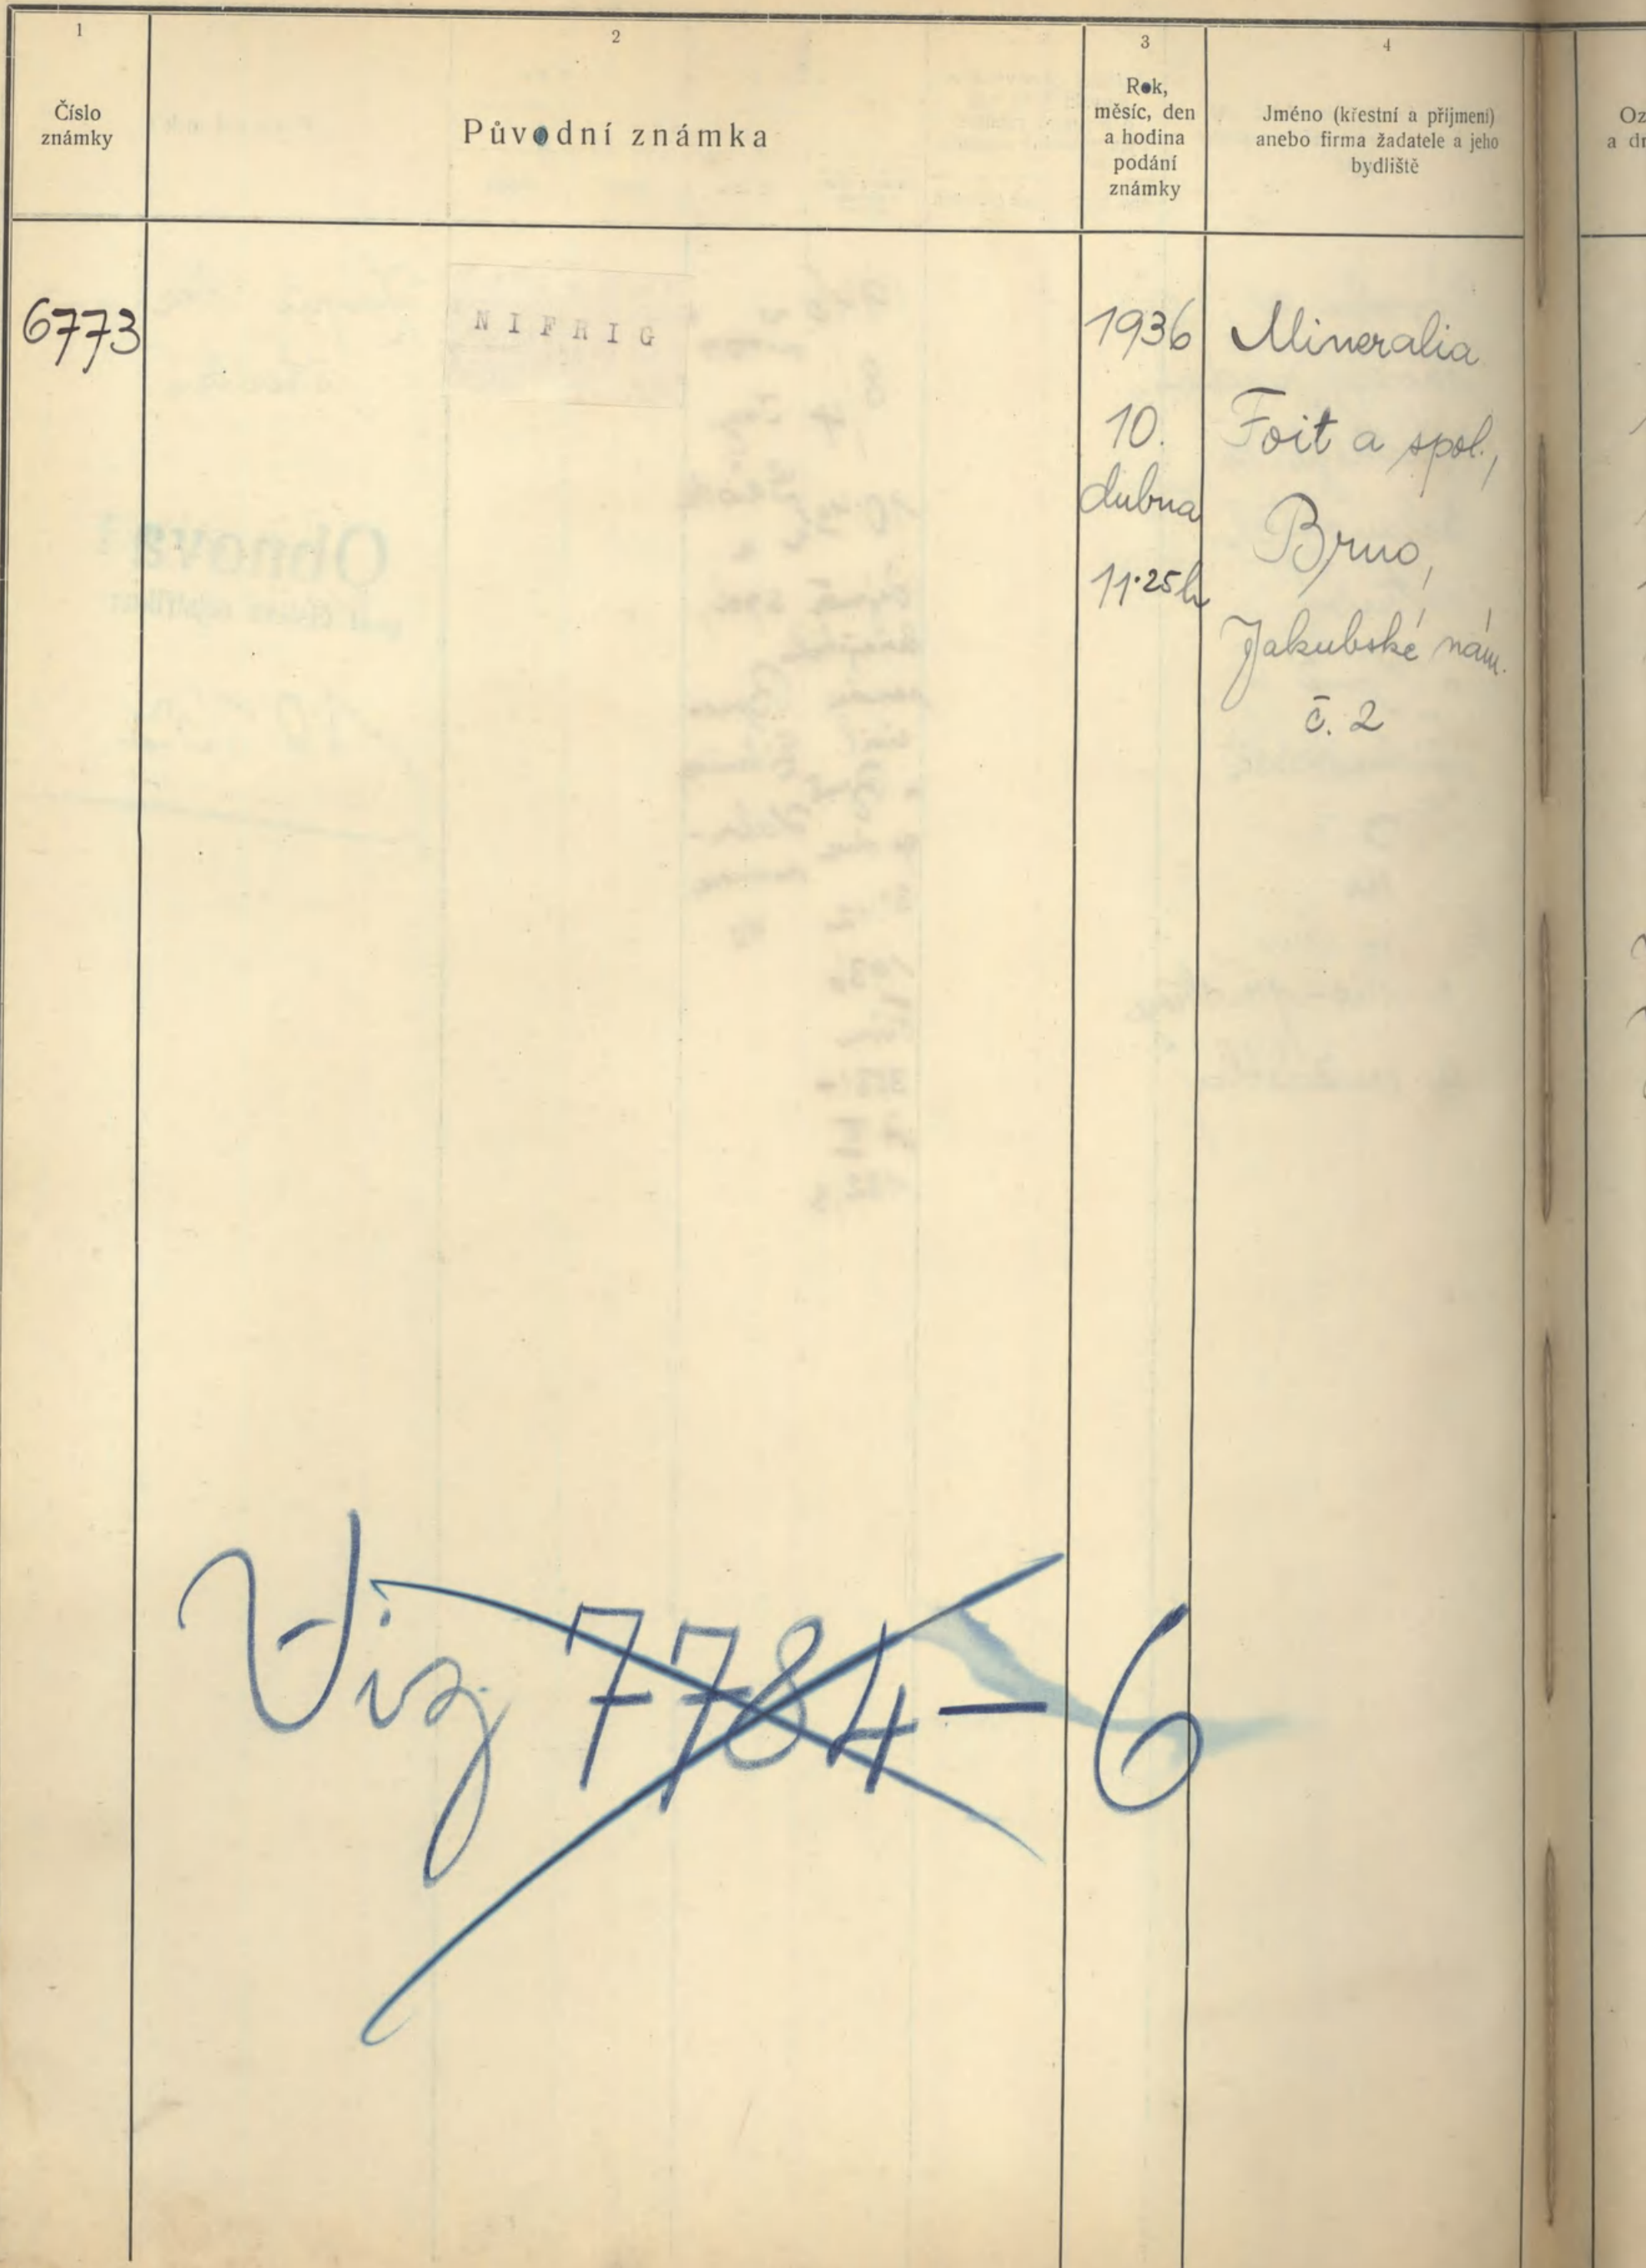 1
2
3
4
Číslo
známky
Původní známka
Rok,
měsíc, den
a hodina
podání
známky
Jméno (křestní a příjmení)
anebo firma žadatele a jeho
bydliště
Oz
a dr
6773
NIFRIG
1936
10.
dubna
11·25h
Mineralia
Foit a spol.,
Brno,
Jakubské nám.
č. 2
Viz 7784-6